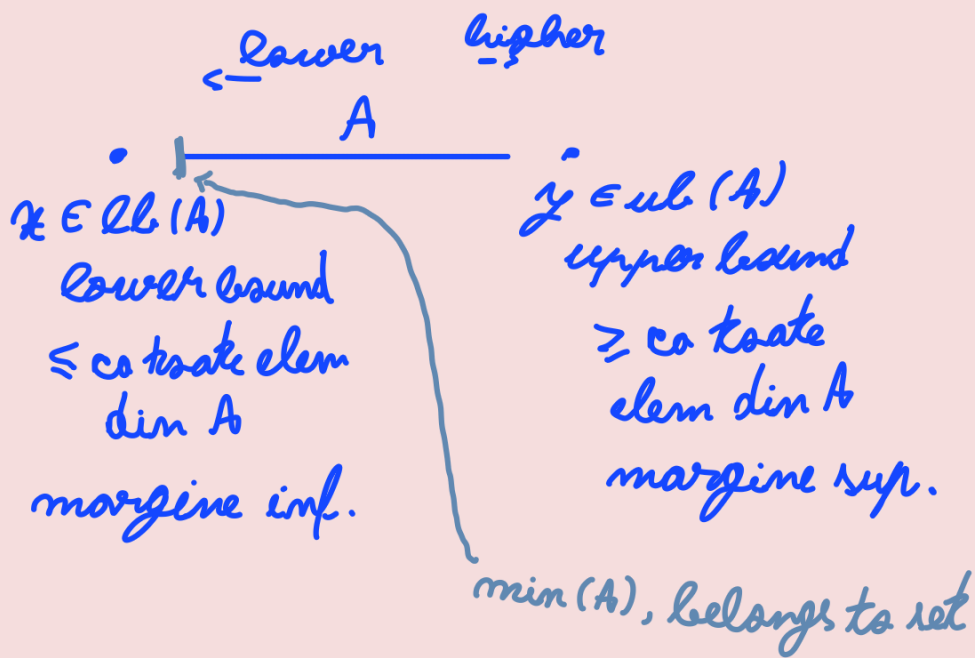 ← lower higher
A
x ∈ lb (A)
lower bound
≤ ca toate elem
din A
margine inf.
y ∈ ub (A)
upper bound
≥ ca toate
elem din A
margine sup.
min (A), belongs to set